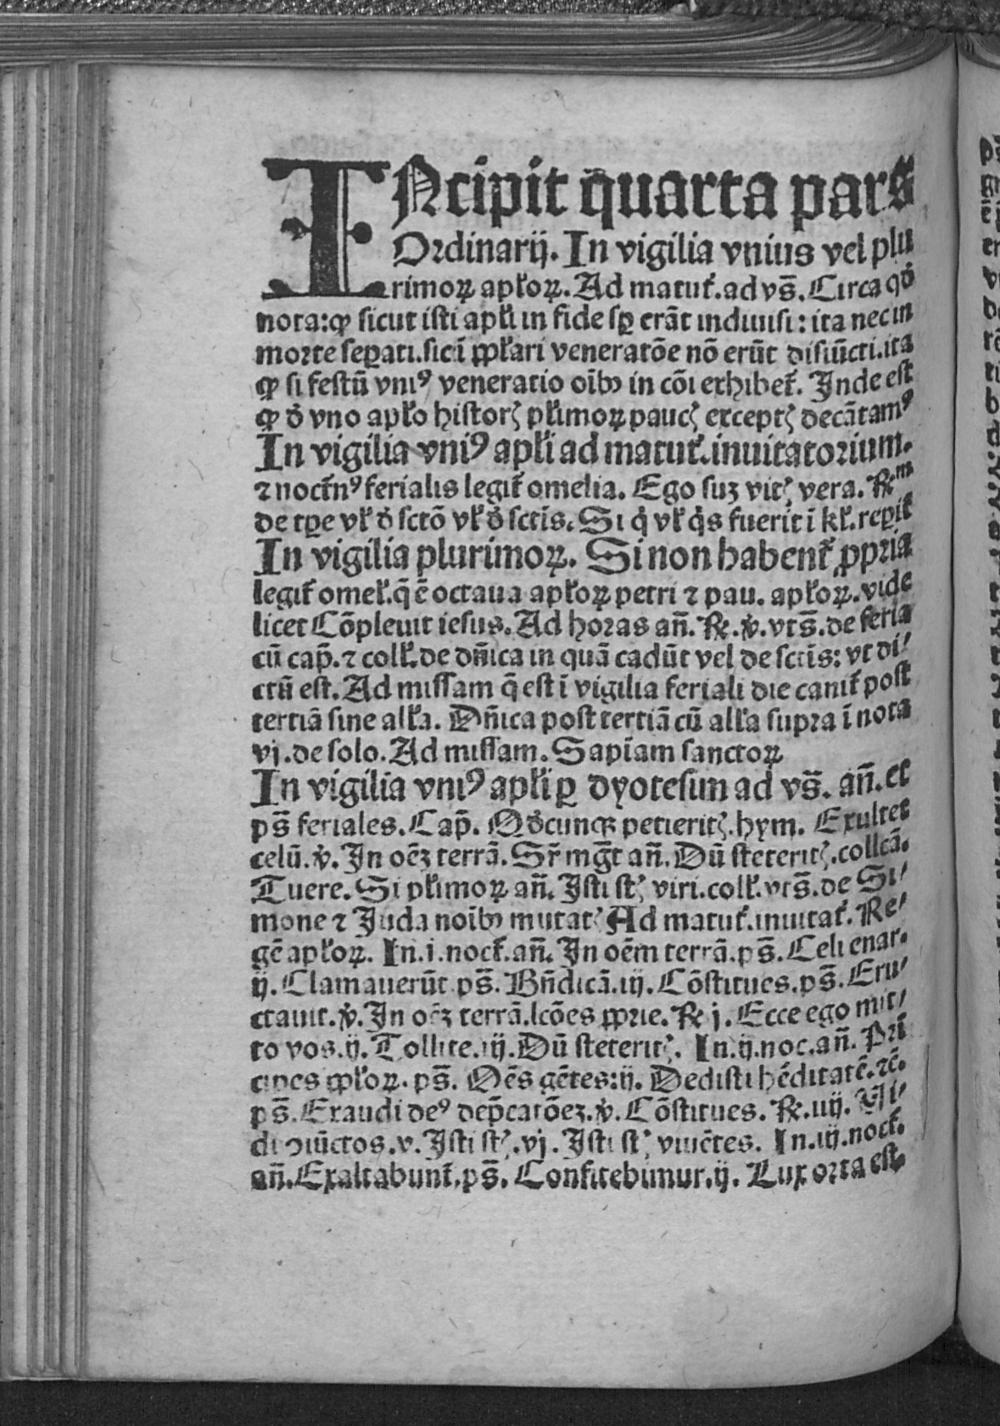 INcipit quarta pars
Ordinarij. In vigilia vnius vel plu
rimoꝝ apƚoꝝ. Ad matut᷑. ad vs̄. Circa qđ
nota: ꝙ sicut isti apƚi in fide sꝑ erāt indiuisi: ita nec in
morte seꝑati. sic ī ꝓpƚari veneratōe nō erūt disiūcti. ita
ꝙ si festū vniꝰ veneratio oībꝰ in cōi exhibet᷑. Inde est
ꝙ đ vno apƚo historꝭ pƚimoꝝ paucꝭ exceptꝭ decātamꝰ
In vigilia vniꝰ apƚi ad matut᷑. inuitatorium.
⁊ noct̄nꝰ ferialis legit᷑ omelia. Ego suꝫ vitꝭ vera. ℟ᵐ
de tꝑe vƚ đ sctō vƚ đ sctīs. Si q̇ vƚ q̇s fuerit ī kƚ. reꝑit᷑
In vigilia plurimoꝝ. Si non habent᷑ ꝓpria
legit᷑ omeƚ. q̄ ē octaua apƚoꝝ petri ⁊ pau. apƚoꝝ. vide
licet Cōpleuit iesus. Ad horas añ. ℟. ℣. vts̄. de feria
cū cap̄. ⁊ colƚ. de dñica in quā cadūt vel de sctīs: vt di⸗
ctū est. Ad missam q̄ est ī vigilia feriali die canit᷑ post
tertiā sine alƚa. Dñica post tertiā cū alƚa supra ī nota
vj. de solo. Ad missam. Sapīam sanctoꝝ
In vigilia vniꝰ apƚi ꝑ dyotesim ad vs̄. añ. et
ps̄ feriales. Cap̄. Qđcunqꝫ petieritꝭ. hym. Exultet
celū. ℣. In oēꝫ terrā. Sr̄ mḡt añ. Dū steteritꝭ. collcā.
Tuere. Si pƚimoꝝ añ. Isti stꝭ viri. colƚ. vts̄. de Si⸗
mone ⁊ Juda noībꝰ mutatꝭ Ad matut᷑. inuitat᷑. Re⸗
gē apƚoꝝ. In. i. noct᷑. añ. In oēm terrā. ps̄. Celi enar.
ij. Clamauerūt. ps̄. Bñdicā. iij. Cōstitues. ps̄. Eru⸗
ctauit. ℣. In oēꝫ terrā. lcōes ꝓprie. ℟ j. Ecce ego mit⸗
to vos. ij. Tollite. iij. Dū steteritꝭ. In. ij. noc. añ. Pri
cipes pƚoꝝ. ps̄. Oēs gētes: ij. Dedisti hēditatē. ⁊c̄.
ps̄. Exaudi deꝰ dep̄catōeꝫ. ℣. Cōstitues. ℟. iiij. Vi⸗
di ꝯiūctos. v. Isti stꝭ. vj. Isti stꝭ viuētes. In. iij. noct᷑.
añ. Exaltabunt᷑. ps̄. Confitebimur. ij. Lux orta est.